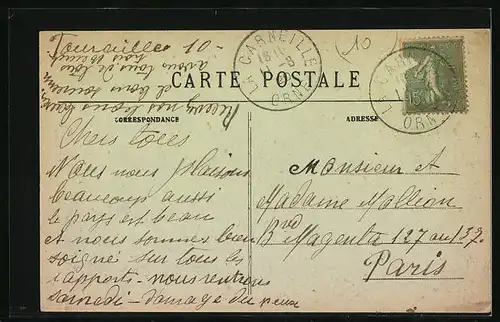 Tourailles 10 -
LA CARNEILLE
ORNE
CARTE POSTALE
CORRESPONDANCE
ADRESSE
Chers tous
Nous nous plaisons
beaucoup aussi
le pays est beau
et nous sommes bien
soigné sur tous les
rapports - nous rentrons
samedi - domage du peux
Monsieur et
Madame Mollion
Bvd Magenta 127 au 137
Paris
LA CARNEILLE
ORNE